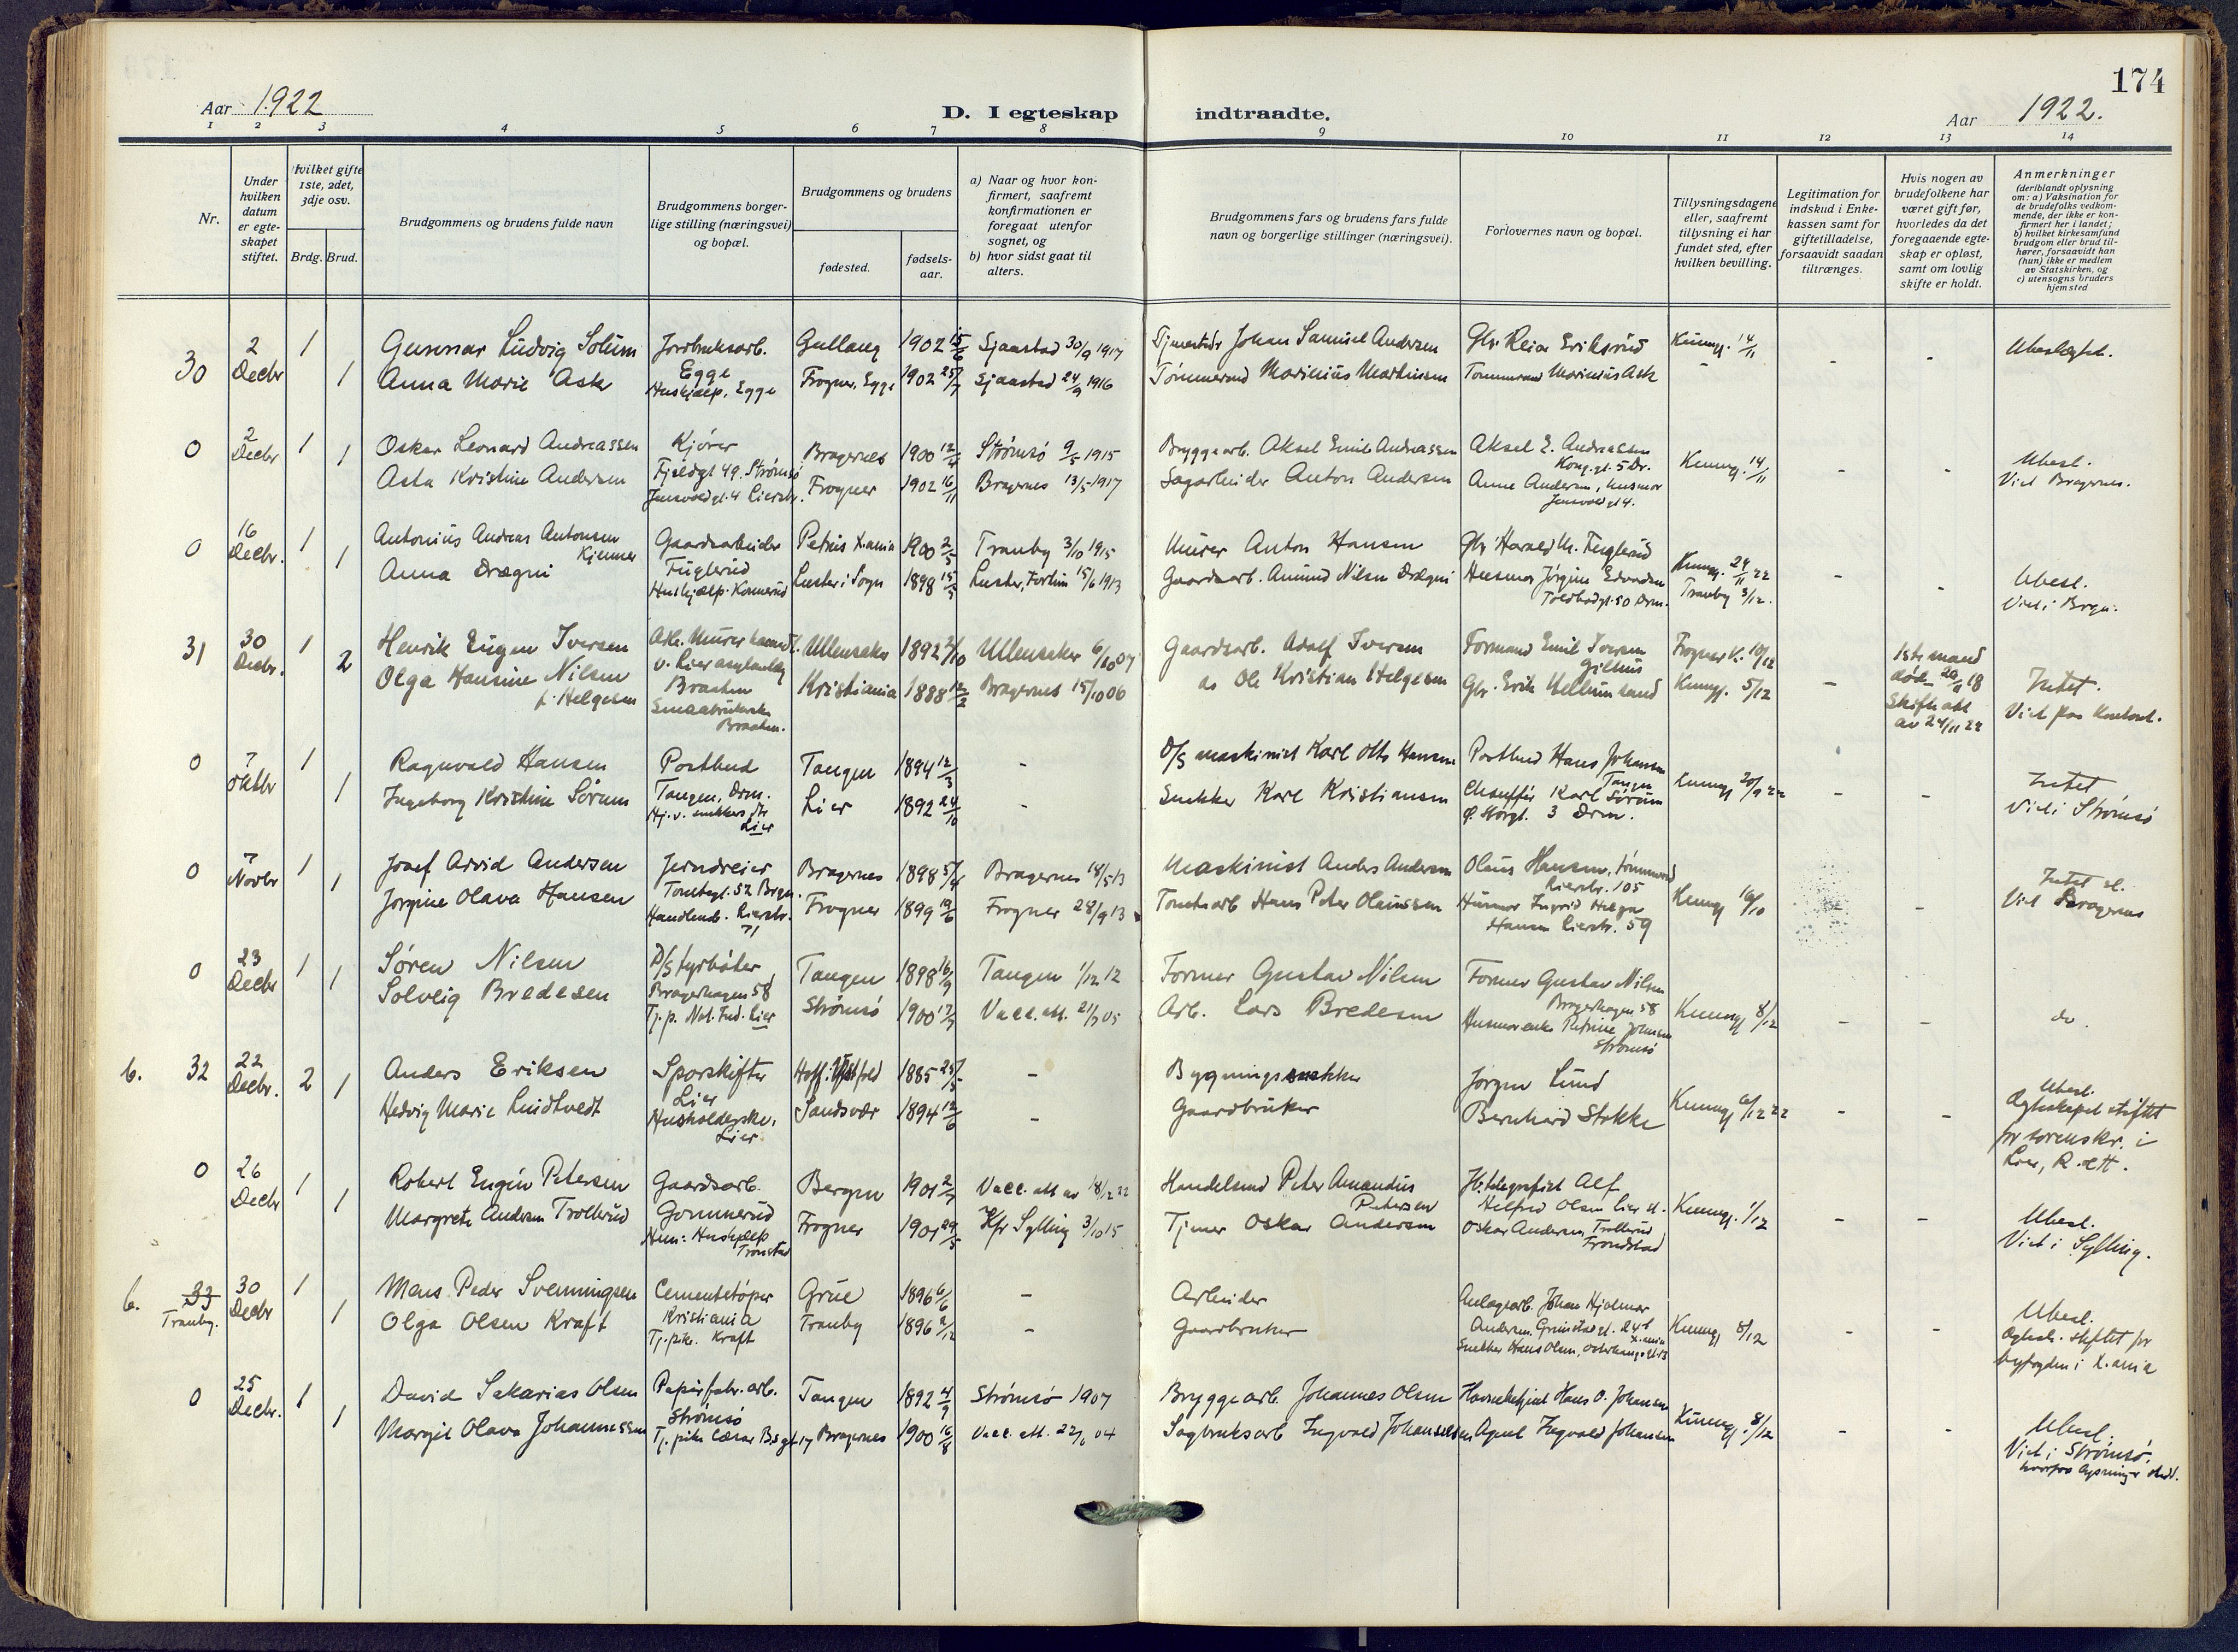 174
Aar 1922
D. I egteskap indtraadte.
Aar 1922.
1 2 3 4 5 6 7 8 9 10 11 12 13 14
Nr.
Under hvilken datum er egteskapet stiftet.
Hvilket gifte 1ste, 2det, 3dje osv.
Brdg. Brud.
Brudgommens og brudens fulde navn
Brudgommens borgerlige stilling (næringsvei) og bopæl.
Brudgommens og brudens
fødested.
fødselsaar.
a) Naar og hvor konfirmert, saafremt konfirmationen er foregaat utenfor sognet, og
b) hvor sidst gaat til alters.
Brudgommens fars og brudens fars fulde navn og borgerlige stillinger (næringsvei).
Forlovernes navn og bopæl.
Tillysningsdagene eller, saafremt tillysning ei har fundet sted, efter hvilken bevilling.
Legitimation for indskud i Enkekassen samt for giftetilladelse, forsaavidt saadan tiltrænges.
Hvis nogen av brudefolkene har været gift før, hvorledes da det foregaaende egteskap er opløst, samt om lovlig skifte er holdt.
Anmerkninger (deriblandt oplysning om: a) Vaksination for de brudefolks vedkommende, der ikke er konfirmert her i landet; b) hvilket kirkesamfund brudgom eller brud tilhører, forsaavidt han (hun) ikke er medlem av Statskirken, og c) utensogns bruders hjemsted
30 2 Decbr 1 Gunnar Ludvig Solum Jordbruksarb. Egge Gullaug 1902 15/6 Sjaastad 30/9 1917 Johan Samuel Andersen Gbr. Reier Eriksrud Kunngj. 14/11 - - Ubeslegtet.
1 Anna Marie Ask Huskjælp. Egge Frogner, Egge 1902 25/7 Sjaastad 24/9 1916 Tømmermd Marinius Martinsen Tømmermand Marinius Ask
0 2 Decbr 1 Oskar Leonard Andreassen Kjører Fjeldgt 49. Strømsø Bragernes 1900 12/4 Strømsø 9/5 1915 Bryggearb. Aksel Emil Andreassen Aksel E. Andreassen Kong. gt. 5 Dr. Kunngj. 14/11 - - Ubesl. Viet Bragernes.
1 Asta Kristine Andersen Frogner 1902 16/11 Bragernes 13/5 1917 Sagarbeider Anton Andersen Anna Andersen, husmor
0 16 Decbr. 1 Antonius Andreas Antonsen Kjenner Gaardsarbeider Fuglerud Petrus X.ania 1900 2/5 Tranby 3/10 1915 Murer Anton Hansen Gbr Harald M. Fuglerud Kunngj. 24/11 22 Tranby 3/12. - - Ubesl. Viet i Brgn.
1 Anna Drægni Huskjælp. Konnerud Luster i Sogn 1898 15/5 Luster, Fortun 15/6 1913 Gaardsarb. Amund Nilsen Drægni Husmor Jørgine Edvardsen Toldbodgt. 50 Drm.
31 30 Decbr. 1 Henrik Eugen Iversen v. Lier asylanlæg Braaten Ullensaker 1892 Ullensaker 6/10 07 Gaardsarb. Adolf Iversen Formand Emil Iversen Gilhus Frogner K. 10/12 - 1ste mand død 20/11 18 Skifteatt av 24/11 22 Intet.
2 Olga Hansine Nilsen f. Helgesen Smaabrukerske Braaten. Kristiania 1888 12/2 Bragernes 15/10 06 do Ole Kristian Helgesen Gbr. Erik Kunngj. 5/12
0 7 Oktbr 1 Ragnvald Hansen Postbud Tangen, Drm. Tangen 1894 12/3 - D/S maskinist Karl Otto Hansen Postbud Hans Johansen Tangen Kunngj 20/9 22 - - Intet Viet i Strømsø
1 Ingeborg Kristine Sørum Lier Lier 1892 24/10 - Snekker Karl Kristiansen Chauffør Karl Sørum Ø. Storgt. 3 Drm.
0 7 Novbr 1 Josef Arvid Andersen Jerndreier Tomtegt. 52 Brgn. Bragernes 1898 5/4 Bragernes 18/5 13 Maskinist Anders Andersen Olaus Hansen, tømmermd Lierstr. 105 Kunngj 16/10 - - Intet sl. Viet Bragernes
1 Jørgine Olava Hansen Handlende. Lierstr. 71 Frogner 1899 19/6 Frogner 28/9 13 Tomtearb Hans Peter Olaussen Husmor Ingrid Helga Hansen Lierstr. 59
0 23 Decbr 1 Søren Nilsen D/S fyrbøter Bragerhagen 58 Tangen 1898 16/9 Tangen 1/12 12 Former Gustav Nilsen Former Gustav Nilsen Bragerhagen 58 Kunngj 8/12 - - do.
1 Solveig Bredesen Lier Strømsø 1900 17/7 Vacc. att. 21/7 05 Arb. Lars Bredesen Husmorenke Petrine Johnsen Strømsø
b. 32 22 Decbr. 2 Anders Eriksen Sporskifter Lier Hoff. Vestfold 1885 - Bygningssnekker Jørgen Lund Kunngj 6/12 22 - - Ubesl. Egteskapet stiftet for sorenskr. i Lier, R. &H.
1 Hedvig Marie Lindtvedt Husholderske. Lier Sandsvær 1894 12/6 - Gaardbruker Bernhard Stokke
0 26 Decbr 1 Robert Eugén Petersen Gaardsarb. Gommerud Bergen 1901 2/7 Vacc. att av 18/12 22 Handelsmd Peter Amandus Petersen Alf Helfred Olsen Lier st. Kunngj. 1/12 - - Ubesl. Viet i Sylling.
1 Margrete Andersen Trollerud Huskjælp Tronstad Frogner 1901 29/5 Kfr Sylling 3/10 15 Tjener Oskar Andersen Oskar Andersen, Trollerud, Trondstad
b. 33 Tranby. 30 Decbr 1 Mons Peder Svenningsen Cementstøper Kristiania Grue 1896 6/6 - Arbeider Anlægsarb. Johan Hjalmar Andersen Grimstadgt. 24b X.ania Kunngj 8/12 - - Ubesl. Egtesk. stiftet for byfogden i X.ania
1 Olga Olsen Kraft Tj.pike. Kraft Tranby 1896 2/12 - Gaardbruker Snekker Hans Olsen,
0 25 Decbr. 1 David Sakarias Olsen Papirfabr. arb. Strømsø Tangen 1892 4/9 Strømsø 1907 Bryggearb. Johannes Olsen Hans O. Johansen Kunngj. 8/12 - - Ubesl. Viet i Strømsø.
1 Margit Olava Johannessen Bragernes 1900 16/8 Vacc. att. 22/6 04 Sagbruksarb Ingvald Johanssen Agent Ingvald Johansen